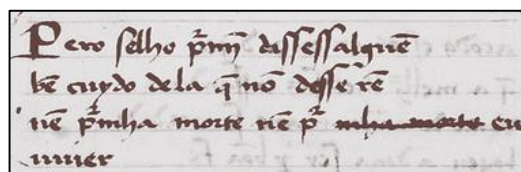 Pero selho p̃mj̃ dissessalguẽ
bẽ cuydo de la q̃ nõ desse rẽ
nẽ p̃ mha morte nẽ p̃ mha morte eu
uiuer